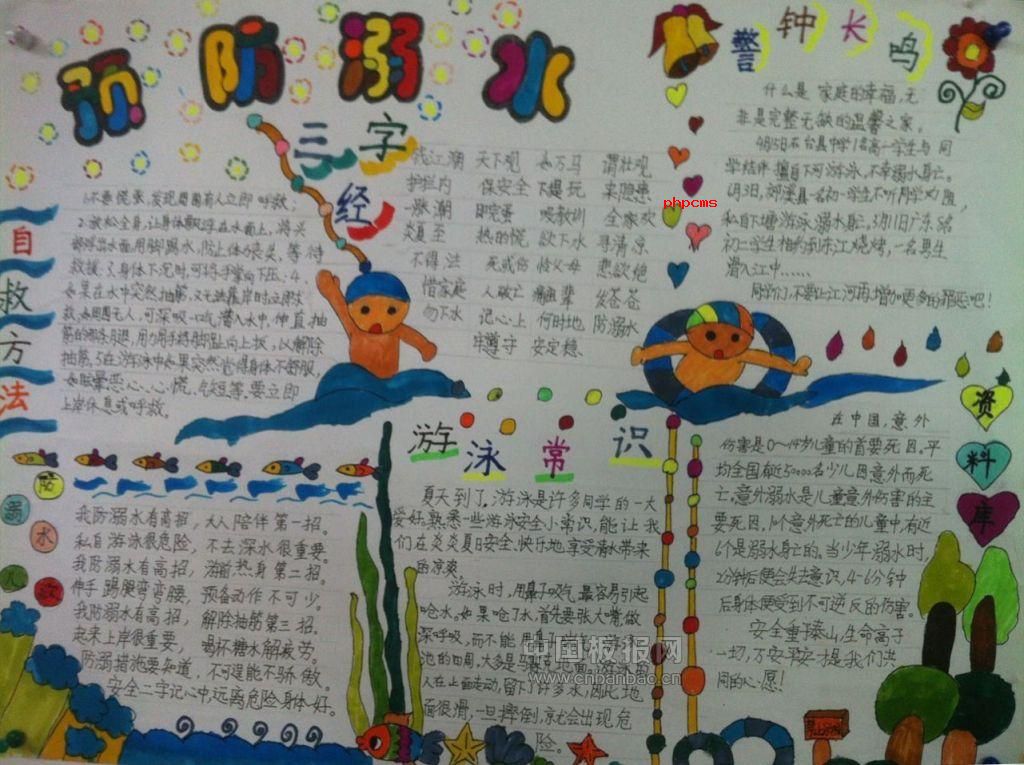 预防溺水
三字经
钱江潮 天下观 如万马 谓壮观
护栏内 保安全 下堤玩 实隐患
一涨潮 即完蛋 吸教训 全家欢
炎夏至 热的慌 欲下水 寻清凉
不得法 死或伤 怡父母 悲欲绝
惜家庭 人破亡 发苍苍
勿下水 记心上 何时地 防溺水
牢遵守 安定稳
phpcms
警钟长鸣
什么是家庭的幸福,无
非是完整无缺的温馨之家。
4月5日石台县中学1名高一学生与同
学结伴擅自下河游泳,不幸溺水身亡。
私自下塘游泳溺水身亡,5月1日广东5名
初二学生相约到东江烧烤,一名男生
潜入江中……
同学们,不要让江河再增加更多的罪恶吧!
自救方法
1.不要慌张,发现周围有人立即呼救,
2.放松全身,让身体飘浮在水面上,将头
部浮出水面,用脚踢水,防止体力丧失,等待
救援。3.身体下沉时,可将手掌向下压。4.
如果在水中突然抽筋,又无法靠岸时,立即求
救。如周围无人,可深吸一口气潜入水中,伸直抽
筋的那条腿,用力将脚趾向上扳,以解除
抽筋。5.在游泳中如果突然觉得身体不舒服,
如眩晕、恶心、心慌、气短等,要立即
上岸休息或呼救。
防溺水儿歌
我防溺水有高招,大人陪伴第一招。
私自游泳很危险,不去深水很重要。
我防溺水有高招,游前热身第二招。
伸手踢腿弯弯腰,预备动作不可少。
我防溺水有高招,解除抽筋第三招。
起来上岸很重要,喝杯糖水解疲劳。
防溺措施要知道,不可逞能不骄傲。
安全二字记心中,远离危险身体好。
游泳常识
夏天到了,游泳是许多同学的一大
爱好,熟悉一些游泳安全小常识,能让我
们在炎炎夏日安全、快乐地享受清水带来
的凉爽。
游泳时,用鼻子吸气,最容易引起
呛水。如果呛了水,首先要张大嘴,做
深呼吸,而不能用鼻
池的四周,大多是马赛克地面,游泳
人在上面走动,留下了许多水,因此地
面很滑,一旦摔倒,就会出现危
险。
中国板报网
www.cnbanbao.cn
资料库
在中国,意外
伤害是0~14岁儿童的首要死因。平
均全国有近50000名少儿因意外而死
亡。意外溺水是儿童意外伤害的主
要死因,10个意外死亡的儿童中,有近
6个是溺水身亡的。当少年溺水时,
2分钟后便会失去意识,4-6分钟
后身体便受到不可逆反的伤害。
安全重于泰山,生命高于
一切,万安平安才是我们共
同的心愿!